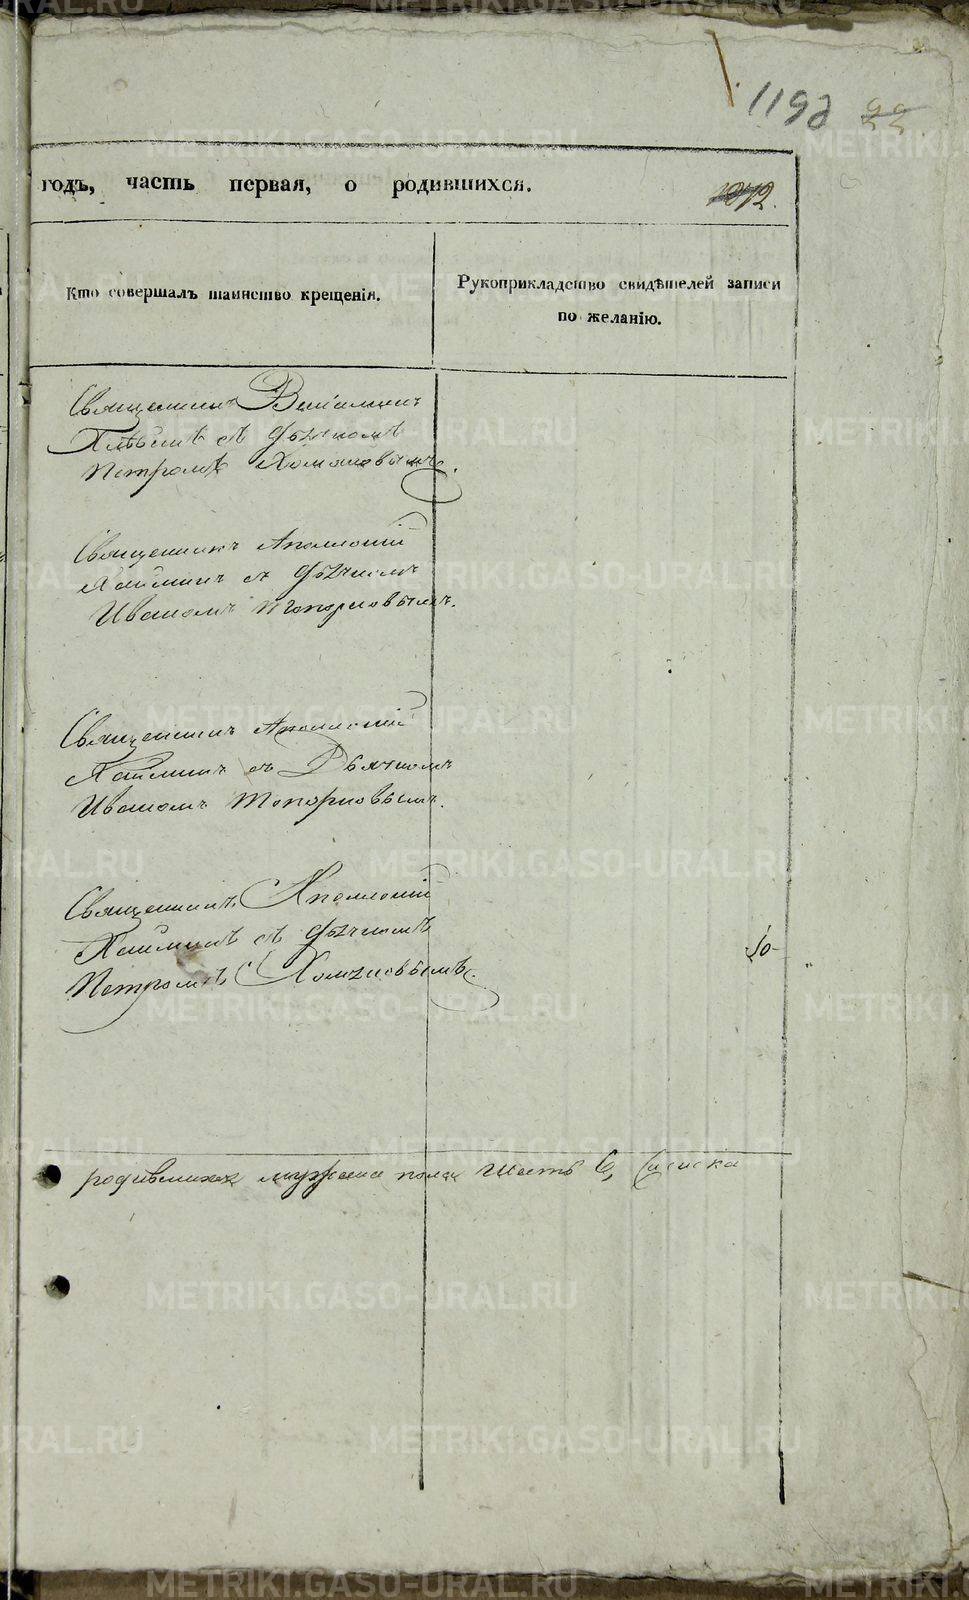 1192
годъ, часть первая, о родившихся.
Кто совершалъ таинство крещенія.
Рукоприкладство свидѣтелей записи
по желанію.
Священникъ
съ дьячкомъ
Петромъ Хомяковымъ.
Священникъ Аполлоній
съ дьячкомъ
Иваномъ Топорковымъ.
Священникъ Аполлоній
съ Дьячкомъ
Иваномъ Топорковымъ.
Священникъ Аполлоній
съ дьячкомъ
Петромъ Хомяковымъ.
родившихся мужеска пола шесть 6,
METRIKI.GASO-URAL.RU